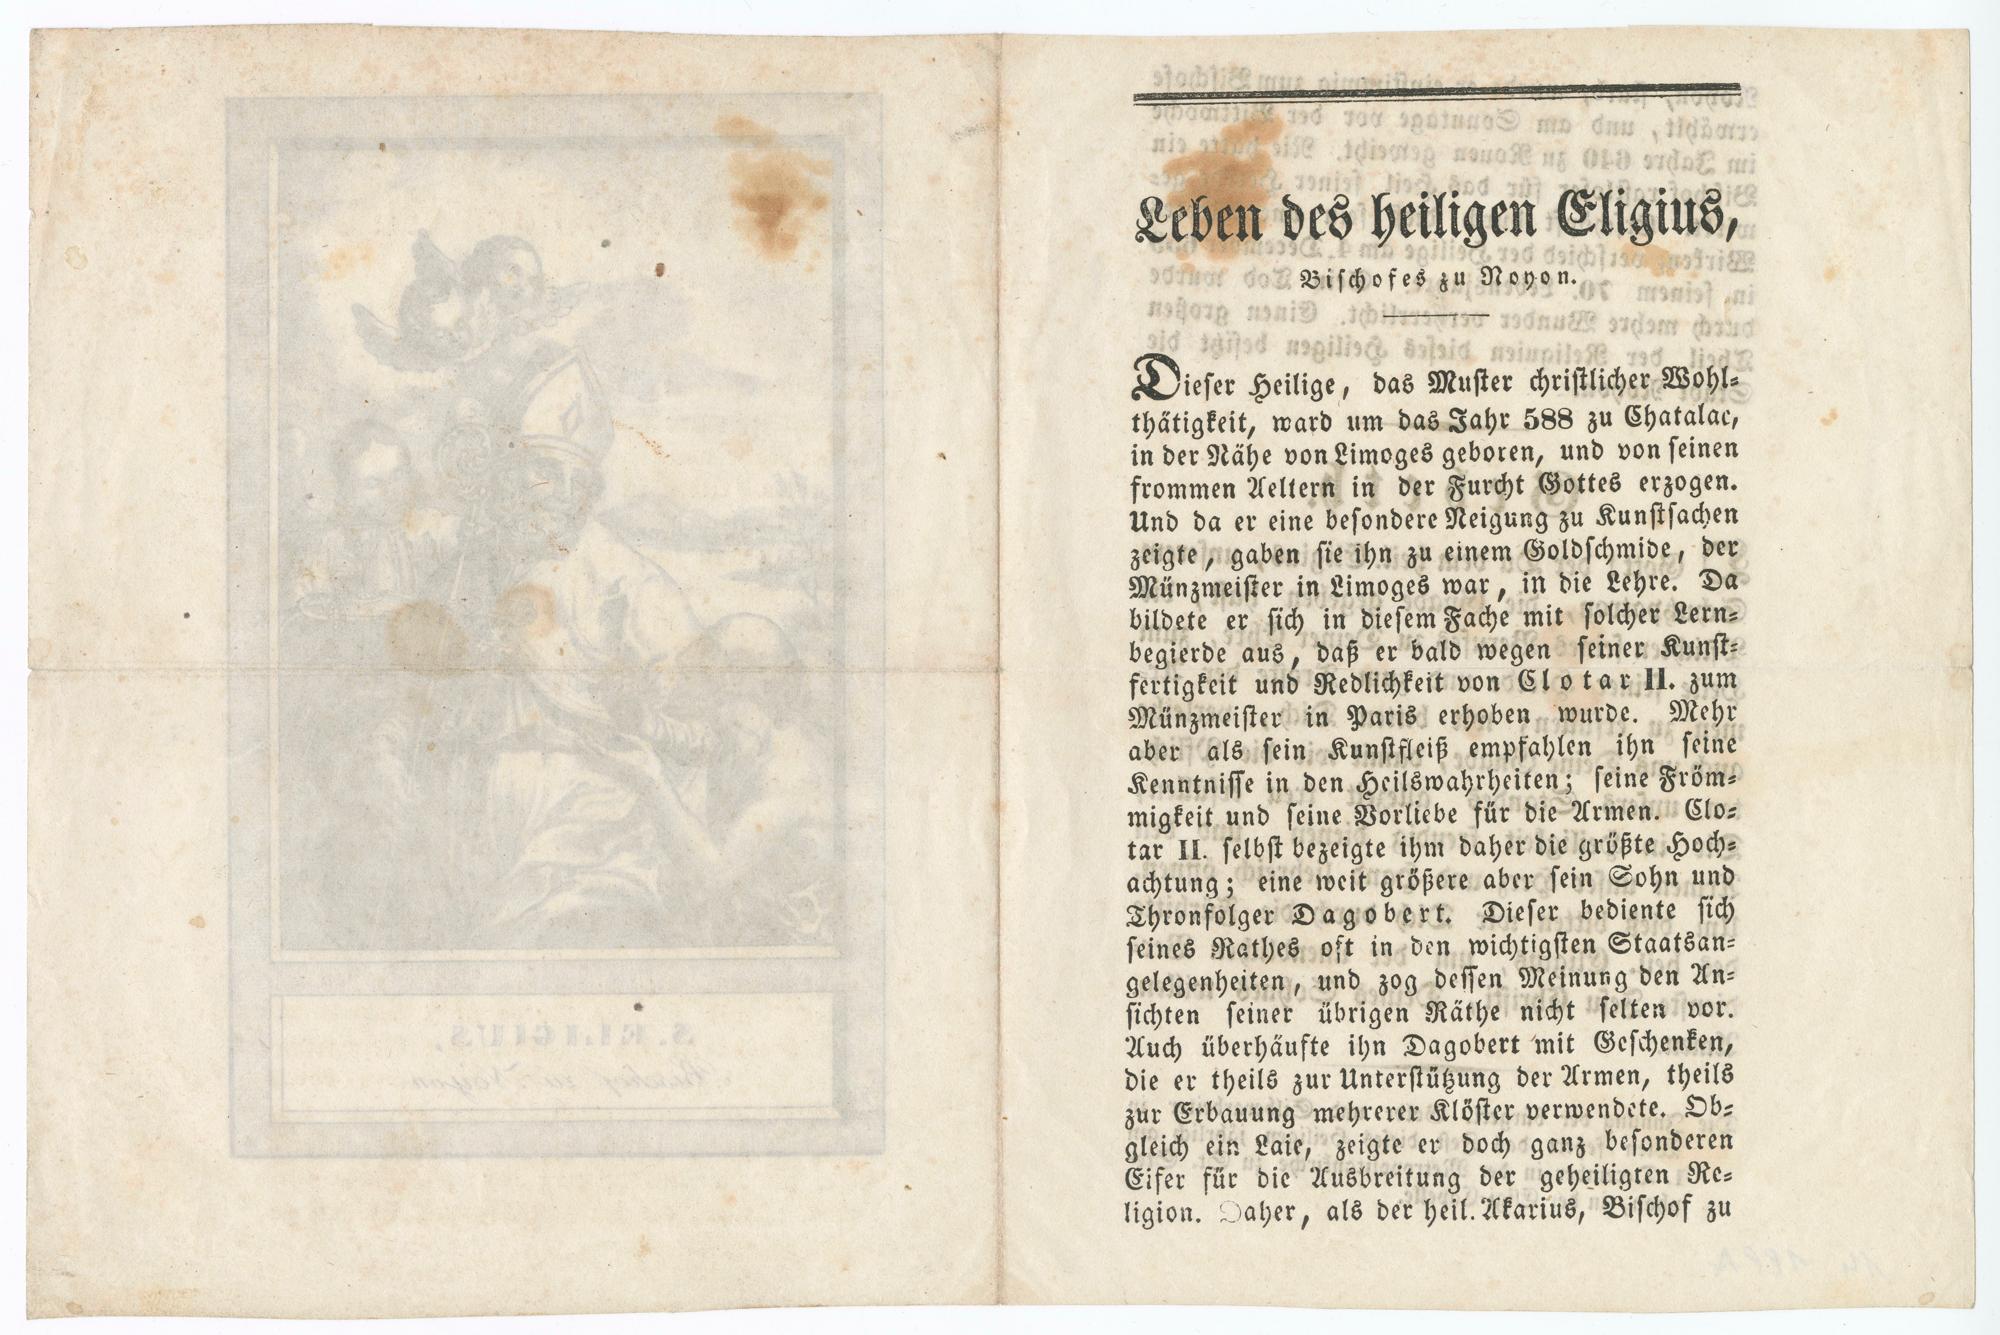 Leben des heiligen Eligius,
Bischofes zu Noyon.
Dieser Heilige, das Muster christlicher Wohl-
thätigkeit, ward um das Jahr 588 zu Chatalac,
in der Nähe von Limoges geboren, und von seinen
frommen Aeltern in der Furcht Gottes erzogen.
Und da er eine besondere Neigung zu Kunstsachen
zeigte, gaben sie ihn zu einem Goldschmide, der
Münzmeister in Limoges war, in die Lehre. Da
bildete er sich in diesem Fache mit solcher Lern-
begierde aus, daß er bald wegen seiner Kunst-
fertigkeit und Redlichkeit von Clotar II. zum
Münzmeister in Paris erhoben wurde. Mehr
aber als sein Kunstfleiß empfahlen ihn seine
Kenntnisse in den Heilswahrheiten; seine Fröm-
migkeit und seine Vorliebe für die Armen. Clo-
tar II. selbst bezeigte ihm daher die größte Hoch-
achtung; eine weit größere aber sein Sohn und
Thronfolger Dagobert. Dieser bediente sich
seines Rathes oft in den wichtigsten Staatsan-
gelegenheiten, und zog dessen Meinung den An-
sichten seiner übrigen Räthe nicht selten vor.
Auch überhäufte ihn Dagobert mit Geschenken,
die er theils zur Unterstützung der Armen, theils
zur Erbauung mehrerer Klöster verwendete. Ob-
gleich ein Laie, zeigte er doch ganz besonderen
Eifer für die Ausbreitung der geheiligten Re-
ligion. Daher, als der heil. Akarius, Bischof zu